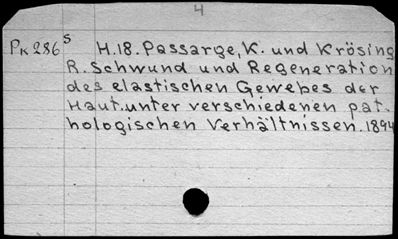 4
Pk 286 s H.18. Passarge, K. und Krösing
R. Schwund und Regeneration
des elastischen Gewebes der
Haut.unter verschiedenen pat.
hologischen Verhältnissen. 1894